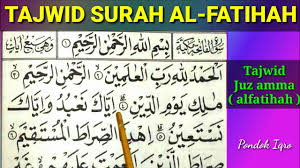 TAJWID SURAH AL-FATIHAH
بِسْمِ اللهِ الرَّحْمٰنِ الرَّحِيْمِ
اَلْحَمْدُ لِلّٰهِ رَبِّ الْعٰلَمِيْنَ ۞ الرَّحْمٰنِ الرَّحِيْمِ ۞
مٰلِكِ يَوْمِ الدِّيْنِ ۞ اِيَّاكَ نَعْبُدُ وَاِيَّاكَ
نَسْتَعِيْنُ ۞ اِهْدِنَا الصِّرَاطَ الْمُسْتَقِيْمَ
Tajwid
Juz amma
( alfatihah )
Pondok Iqro